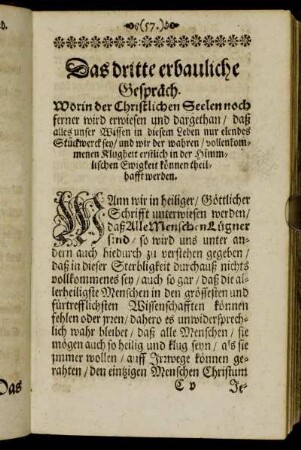 (57.)
Das dritte erbauliche
Gespräch.
Worin der Christlichen Seelen noch
ferner wird erwiesen und dargethan / daß
alles unser Wissen in diesem Leben nur elendes
Stückwerck sey / und wir der wahren / vollenkom-
menen Klugheit erstlich in der Himm-
lischen Ewigkeit können theil-
hafft werden.
WAnn wir in heiliger / Göttlicher
Schrifft unterwiesen werden /
daß Alle Menschen Lügner
sind / so wird uns unter an-
dern auch hiedurch zu verstehen gegeben /
daß in dieser Sterbligkeit durchauß nichts
vollkommenes sey / auch so gar / daß die al-
lerheiligste Menschen in den grössesten und
fürtrefflichsten Wissenschafften können
fehlen oder yrren / dahero es unwidersprech-
lich wahr bleibet / daß alle Menschen / sie
mögen auch so heilig und klug seyn / als sie
jmmer wollen / auff Irrwege können ge-
rahten / den eintzigen Menschen Christum
C v Je-
Das